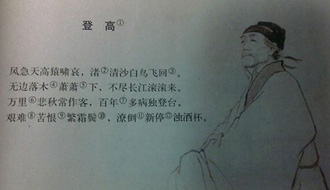 登高①
风急天高猿啸哀，渚②清沙白鸟飞回③。
无边落木④萧萧⑤下，不尽长江滚滚来。
万里⑥悲秋常作客，百年⑦多病独登台。
艰难⑧苦恨⑨繁霜鬓⑩，潦倒⑪新停⑫浊酒杯。